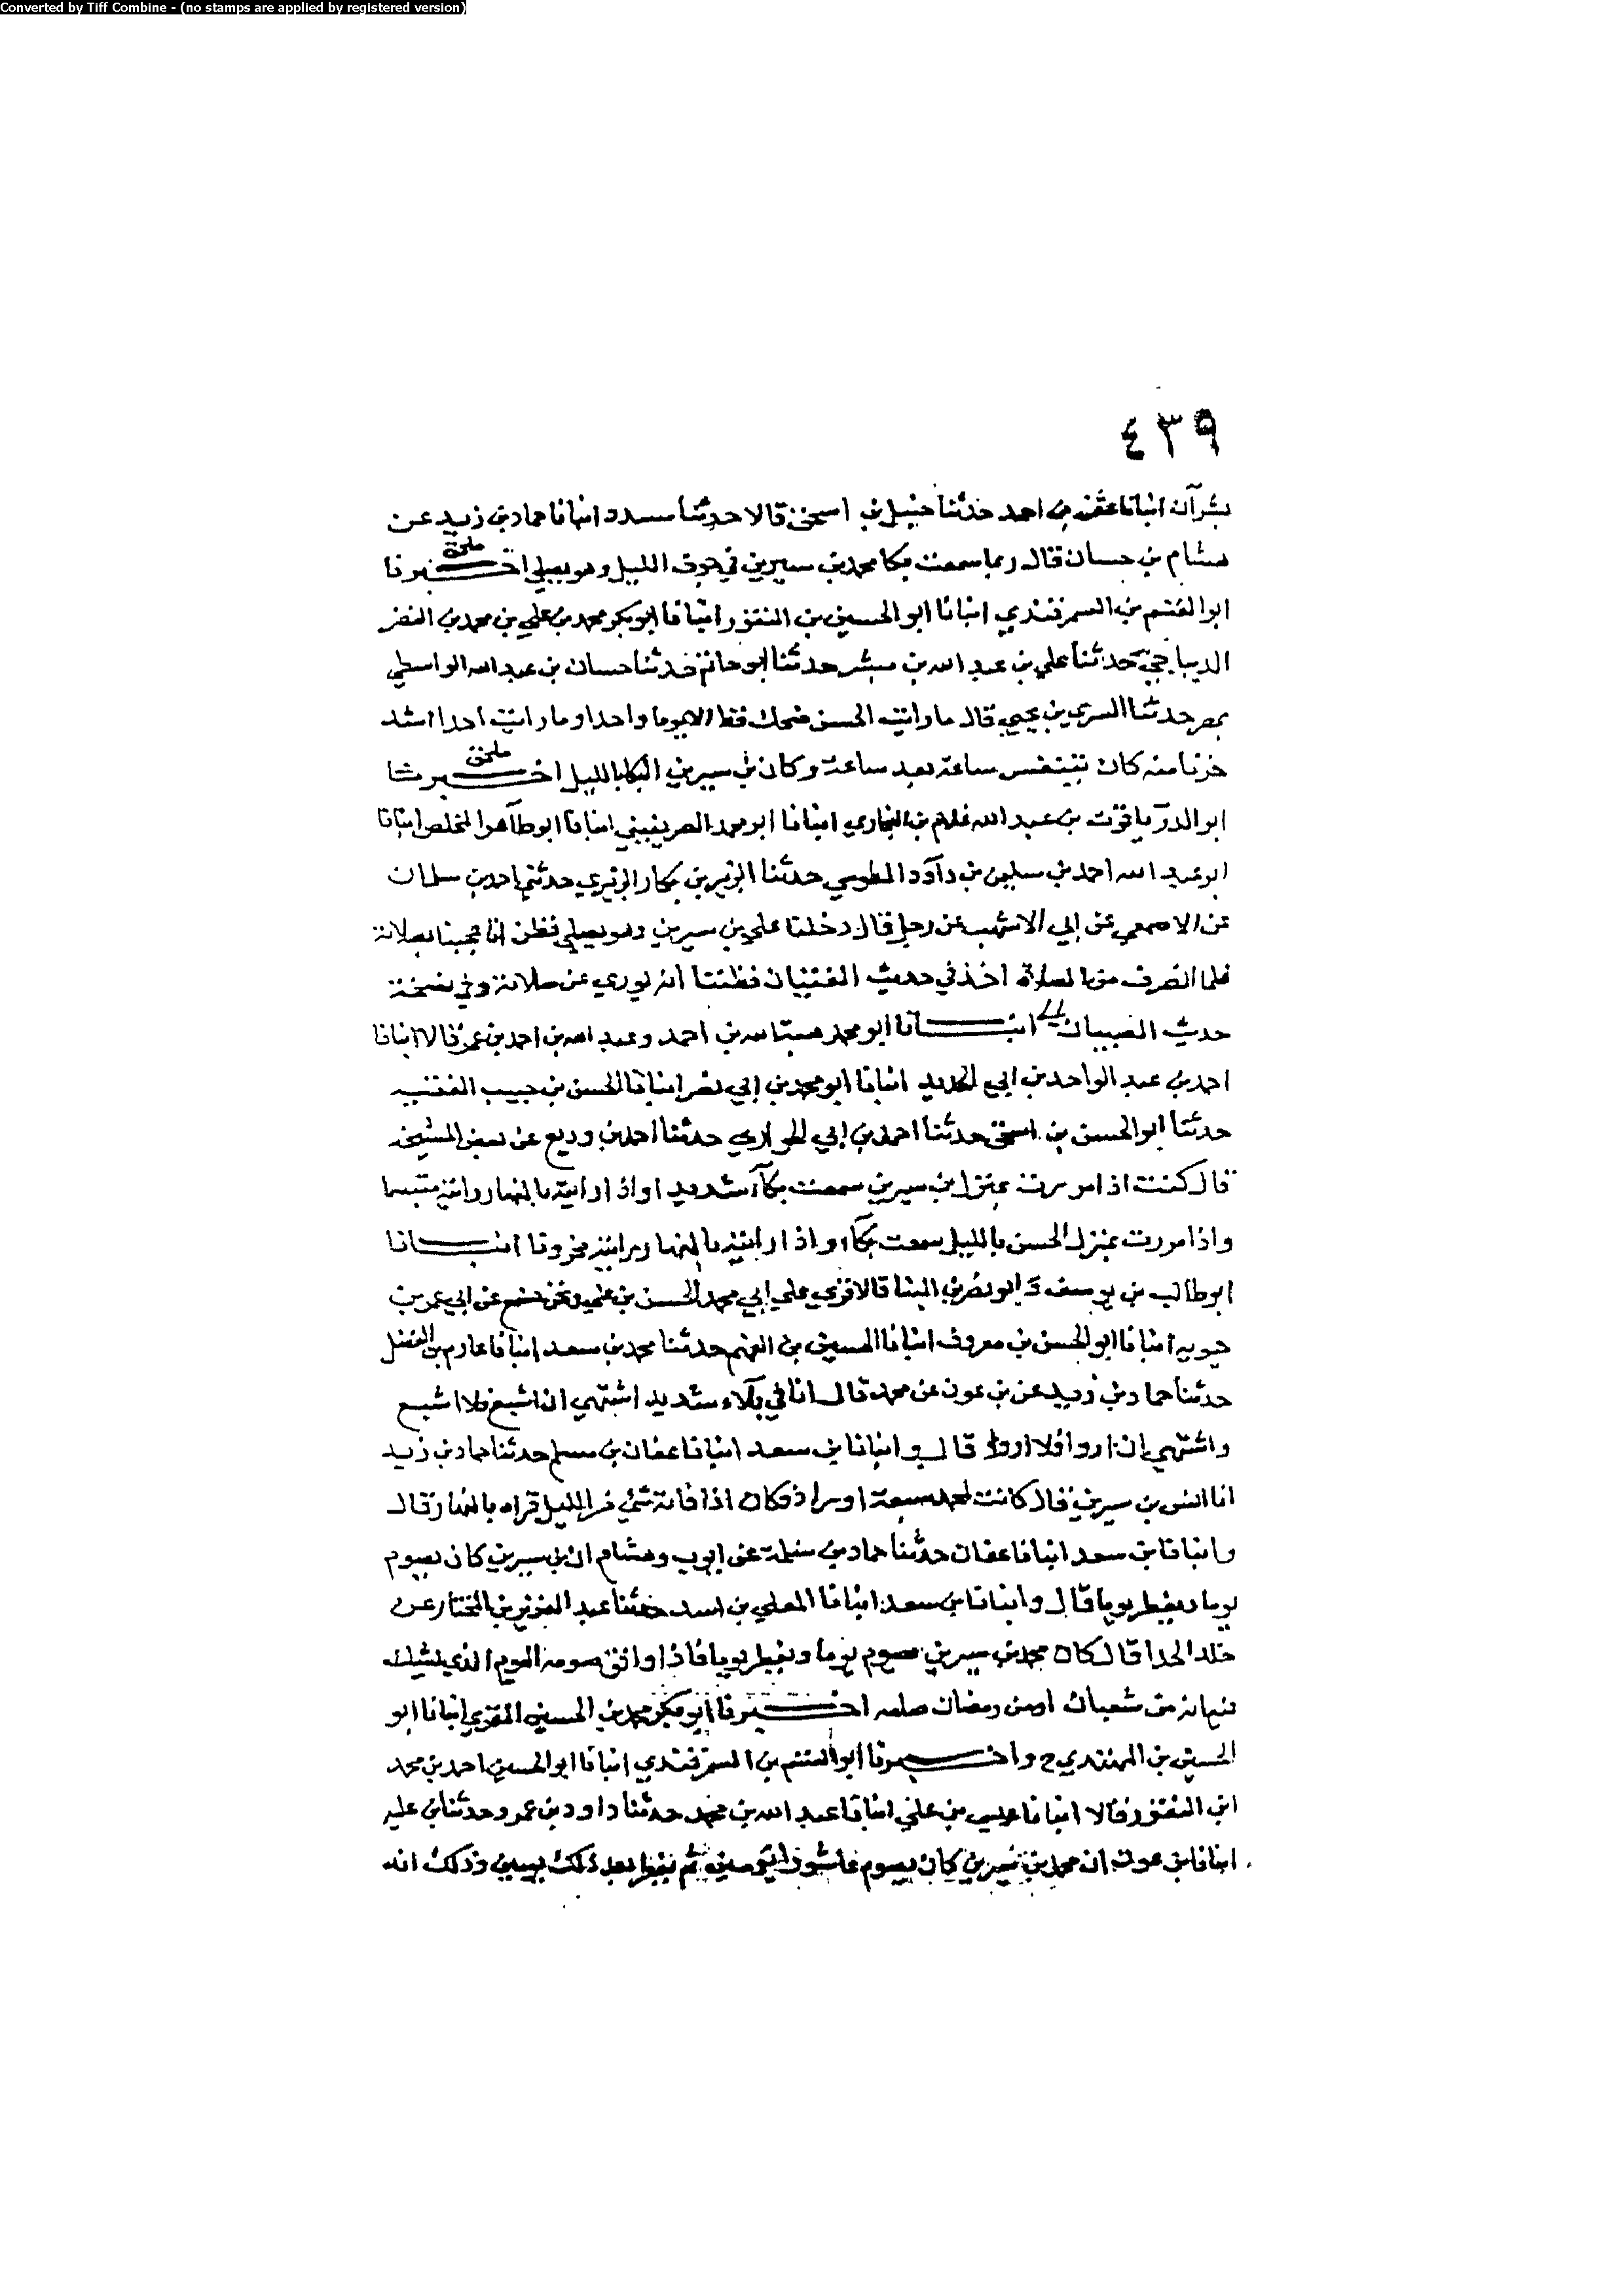 Converted by Tiff Combine - (no stamps are applied by registered version)
٤٣٩
بشرآن انبانا عثمن بن احمد حدثنا حنبل بن اسحق قالا حدثنا مسدد انبانا حماد بن زيد عن
هشام بن حسان قال ربما سمعت بكا محمد بن سيرين في جوف الليل وهو يصلي اخبرنا
ملحق
ابو القسم بن السمرقندي انبانا ابو الحسين بن النقور انبانا ابو بكر محمد بن علي بن محمد بن النضر
الديباجي حدثنا علي بن عبد الله بن مبشر حدثنا ابو حاتم حدثنا حسان بن عبد الله الواسطي
بمصر حدثنا السري بن يحيى قال ما رايت الحسن ضحك قط الا يوما واحدا وما رايت احدا اشد
حزنا منه كان يتنفس ساعة بعد ساعة وكان بن سيرين البكا بالليل اخبرنا
ملحق
ابو الدر ياقوت بن عبد الله غلام بن البخاري انبانا ابو محمد الصريفيني انبانا ابو طاهر المخلص انبانا
ابو عبد الله احمد بن سليمن بن داود الطوسي حدثنا الزبير بن بكار الزبيري حدثني احمد بن سلمان
عن الاصمعي عن ابي الاشهب عن رجل قال دخلنا على بن سيرين وهو يصلي فظن انا عجبنا بصلاته
فلما انصرف من الصلاة اخذ في حديث الفتيان فظننا انه يوري عن صلاته وفي نسخة
حديث الصبيان انبانا ابو محمد هبة الله بن احمد وعبد الله بن احمد بن عمر قالا انبانا
احمد بن عبد الواحد بن ابي الحديد انبانا ابو محمد بن ابي نصر انبانا الحسن بن حبيب الفقيه
حدثنا ابو الحسن بن اسحق حدثنا احمد بن ابي الحواري حدثنا احمد بن وديع عن بعض المشيخة
قال كنت اذا مررت بمنزل بن سيرين سمعت بكآ شديدا واذا رايته بالنهار رايته متبسما
واذا مررت بمنزل الحسن بالليل سمعت بكاء واذا رايته بالنهار رايته محزونا انبانا
ابو طالب بن يوسف و ابو نصر بن البنا قالا قري على ابي محمد الحسن بن علي ونحن نسمع عن ابي عمر بن
حيويه انبانا ابو الحسن بن معروف انبانا الحسين بن الفهم حدثنا محمد بن سعد انبانا عارم بن الفضل
حدثنا حماد بن زيد عن بن عون عن محمد قال انا في بلاء شديد اشتهي ان اشبع فلا اشبع
واشتهي ان اروا فلا اروا قال وانبانا بن سعد انبانا عفان بن مسلم حدثنا حماد بن زيد
انا انس بن سيرين قال كانت لمحمد سبعة اوراد وكان اذا فاته شي من الليل قراه بالنهار قال
وانبانا بن سعد انبانا عفان حدثنا حماد بن سلمة عن ايوب وهشام ان بن سيرين كان يصوم
يوما ويفطر يوما قال وانبانا بن سعد انبانا المعلى بن اسد حدثنا عبد العزيز بن المختار عن
خلد الحذا قال كان محمد بن سيرين يصوم يوما ويفطر يوما فاذا وافق صومه اليوم الذي يشك
فيه انه من شعبان او من رمضان صامه اخبرنا ابو بكر محمد بن الحسين المقري انبانا ابو
الحسين بن المهتدي ح واخبرنا ابو القسم بن السمرقندي انبانا ابو الحسين احمد بن محمد
ابن النقور قالا انبانا عيسى بن علي انبانا عبد الله بن محمد حدثنا داود بن عمرو حدثنا بن عليه
انبانا بن عون ان محمد بن سيرين كان يصوم عاشورا يومين ثم يفطر بعد ذلك يومين وذلك انه